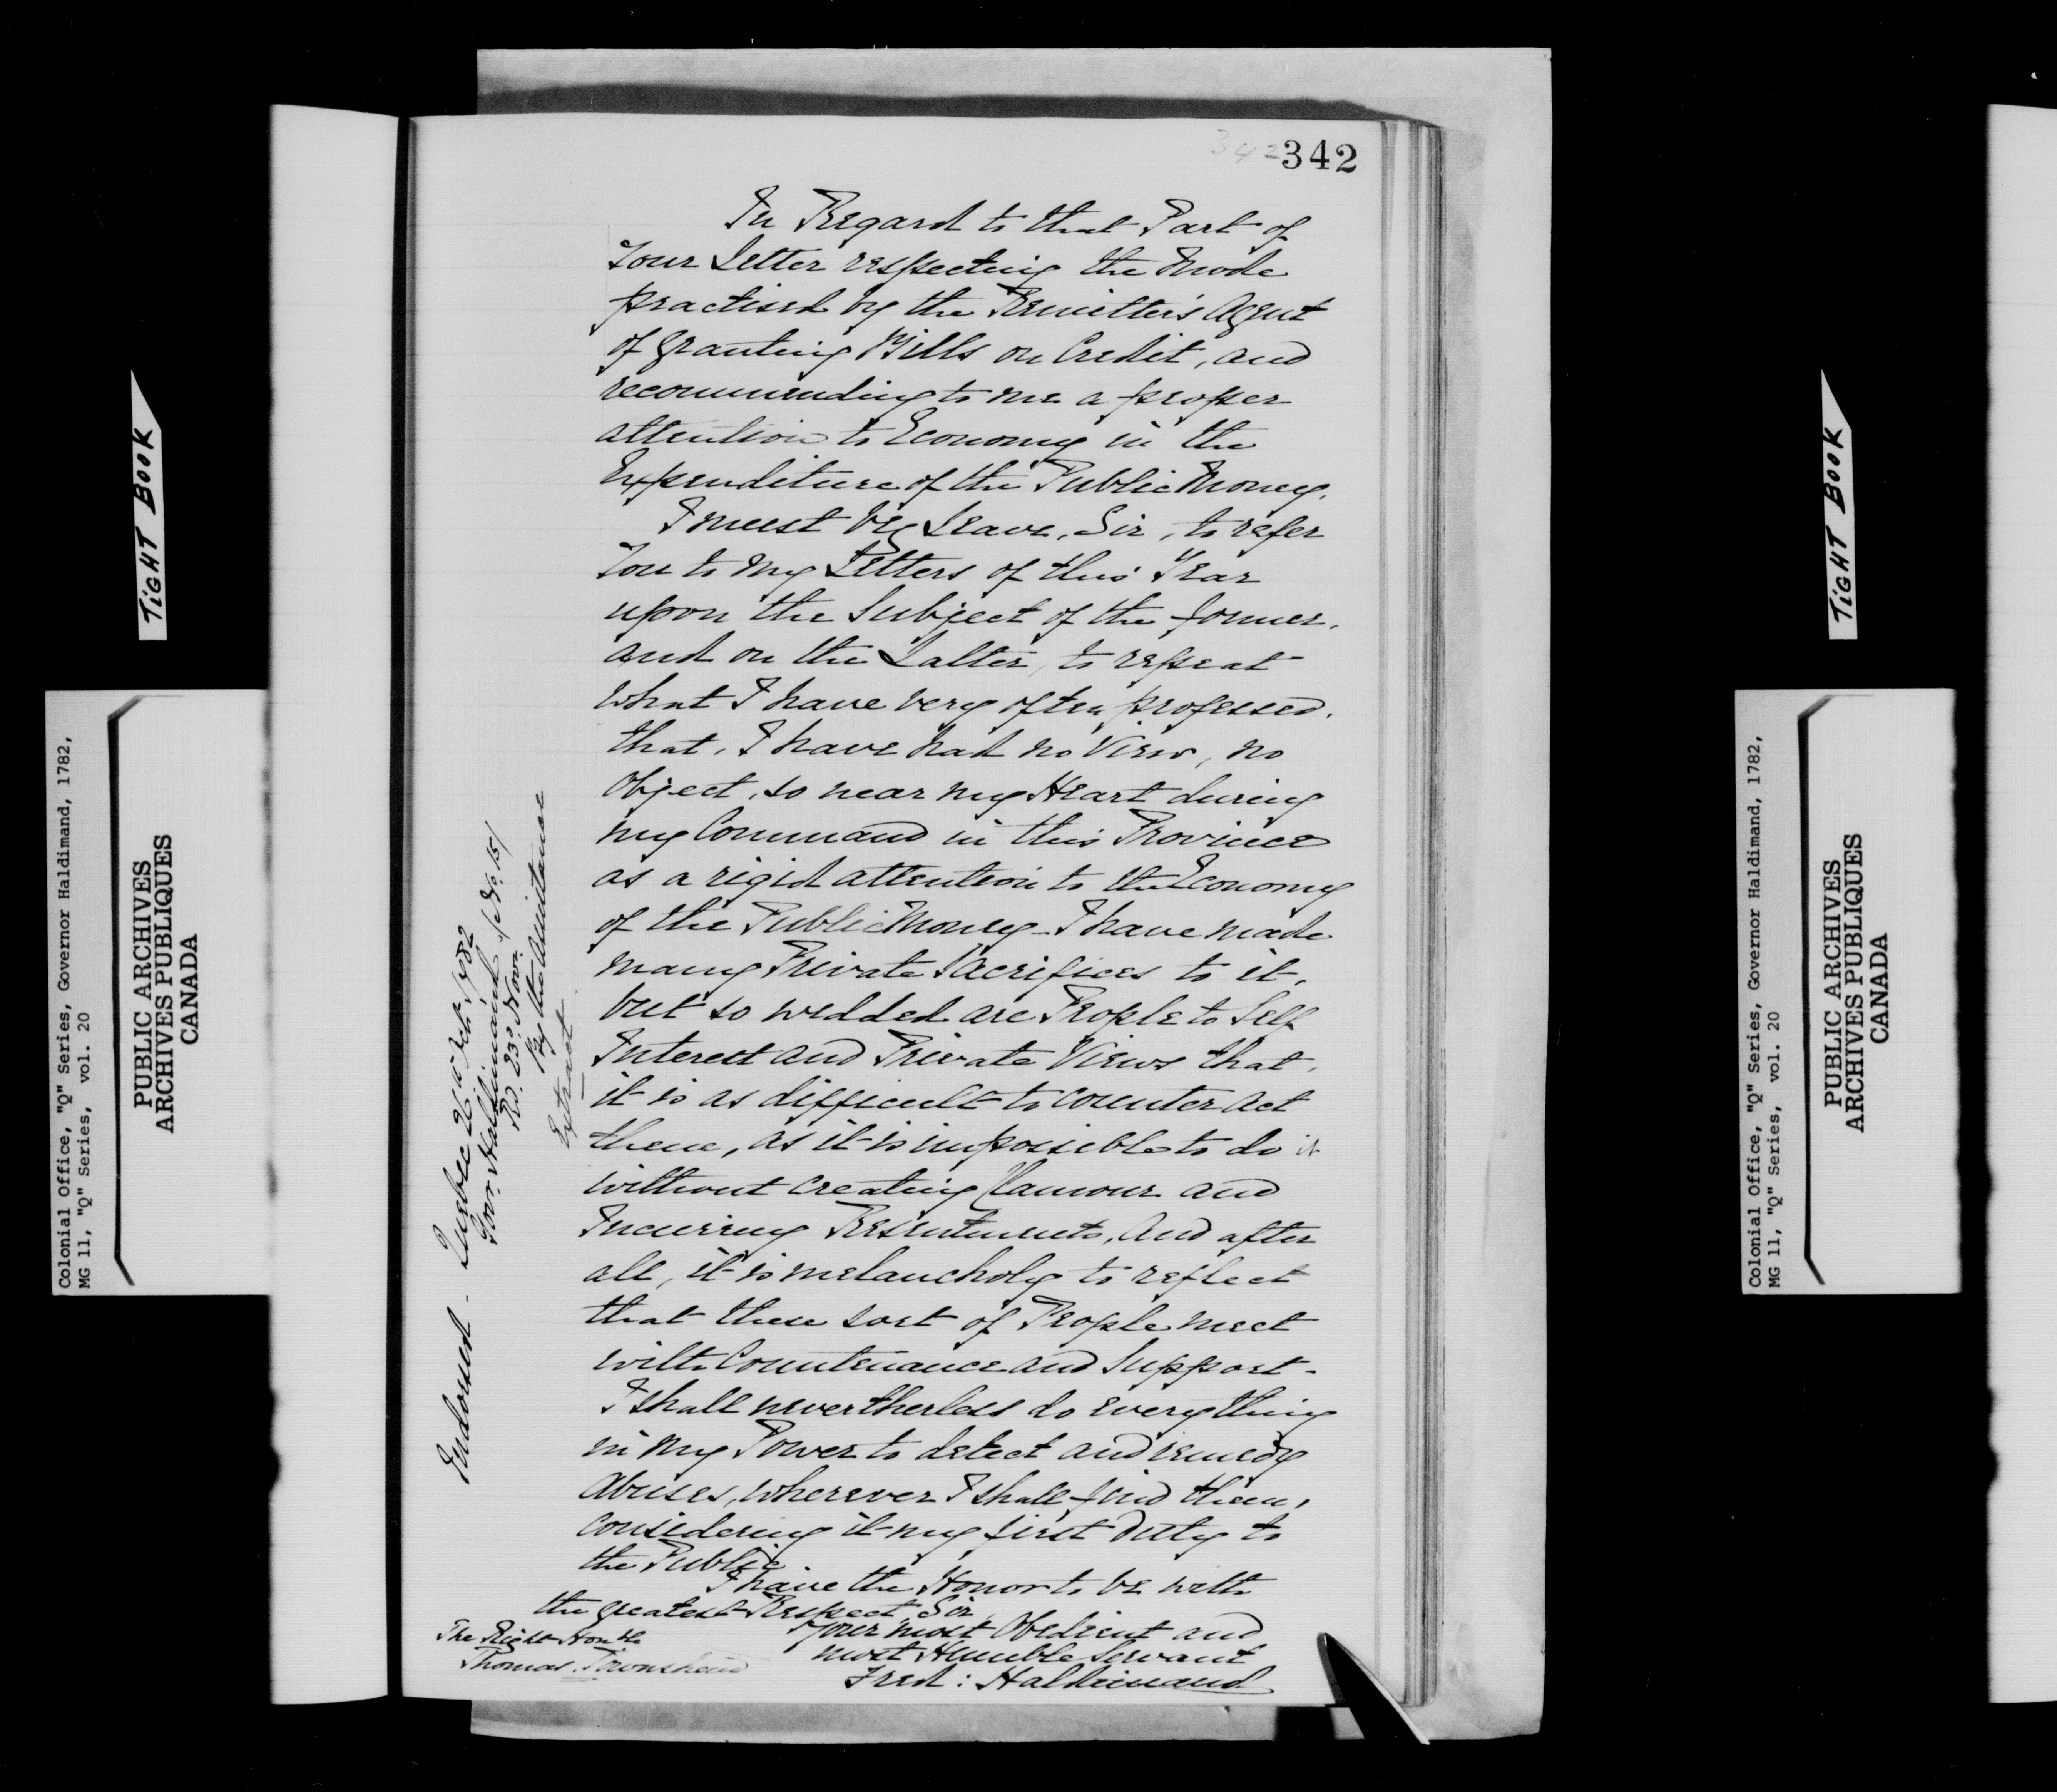 342 342
In Regard to that Part of
Your Letter respecting the Mode
practised by the Remitter's Agent
of granting Bills on Credit, and
recommending to me a proper
attention to Economy in the
Expenditure of the Public Money.
I must beg Leave, Sir, to refer
You to my Letters of this Year
upon the Subject of the former.
and on the Latter, to repeat
what I have very often professed.
that, I have had no View, no
object, so near my Heart during
my Command in this Province
as a rigid attention to the Economy
of the Public Money - I have made
many Private Sacrifices to it,
but so wedded are People to Self
Interest and Private Views that,
it is as difficult to counter act
them, as it is impossible to do it
without creating Clamour and
Incurring Resentments, and after
all, it is melancholy to reflect
that these sort of People meet
with Countenance and Support -
I shall nevertheless do everything
in my Power to detect and remedy
Abuses, wherever I shall find them,
considering it my first Duty to
the Public
I have the Honor to be with
the greatest Respect, Sir,
Your most Obedient and
most Humble Servant
Fred: Haldimand
The Right Honble
Thomas Townshend
Endorsed - Quebec 26th 1782
Govr Haldimand (No. 15)
Rd. 23d. Novr.
By the Quintance
Extract.
TIGHT BOOK
Colonial Office, "Q" Series, Governor Haldimand, 1782,
MG 11, "Q" Series, vol. 20
PUBLIC ARCHIVES
ARCHIVES PUBLIQUES
CANADA
TIGHT BOOK
Colonial Office, "Q" Series, Governor Haldimand, 1782,
MG 11, "Q" Series, vol. 20
PUBLIC ARCHIVES
ARCHIVES PUBLIQUES
CANADA